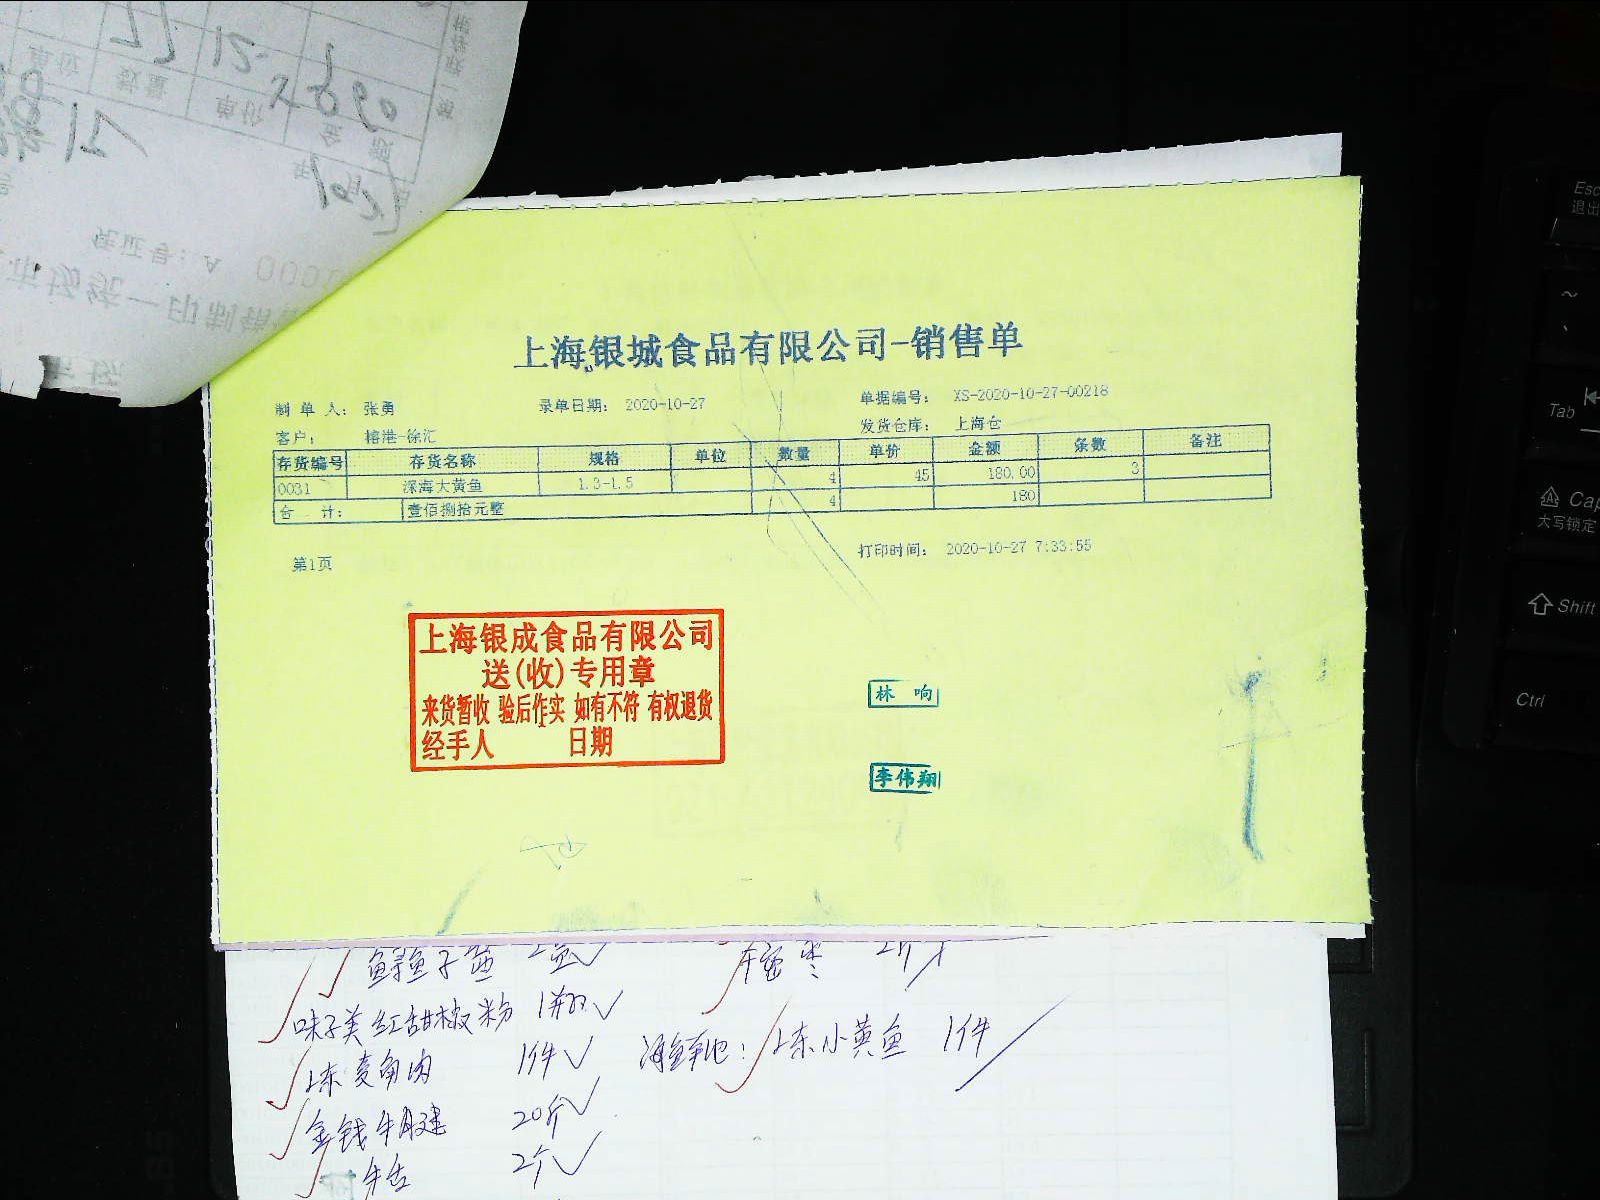 上海银城食品有限公司-销售单
制 单 人： 张勇 录单日期： 2020-10-27 单据编号： XS-2020-10-27-00218
客户： 榕港-徐汇 发货仓库： 上海仓
存货编号 存货名称 规格 单位 数量 单价 金额 条数 备注
0031 深海大黄鱼 1.3-1.5 4 45 180.00 3
合 计： 壹佰捌拾元整 4 180
第1页 打印时间： 2020-10-27 7:33:55
上海银成食品有限公司
送(收)专用章
来货暂收 验后作实 如有不符 有权退货
经手人 日期
林 响
李伟翔
味子美红甜椒粉 1瓶
1件 海鲜池： 上东小黄鱼 1件
金钱牛月建 20斤
牛舌 2个
单位 数量 单价 金 额
凭证号：A 0000
市场统一印制销
Esc
退出
Tab
Cap
大写锁定
Shift
Ctrl